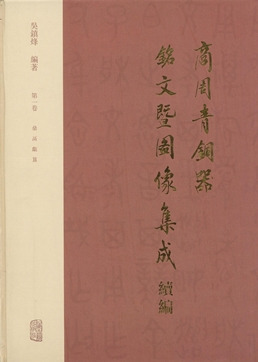 商周青銅器
銘文暨圖像集成 續編
吳鎮烽 編著
第一卷